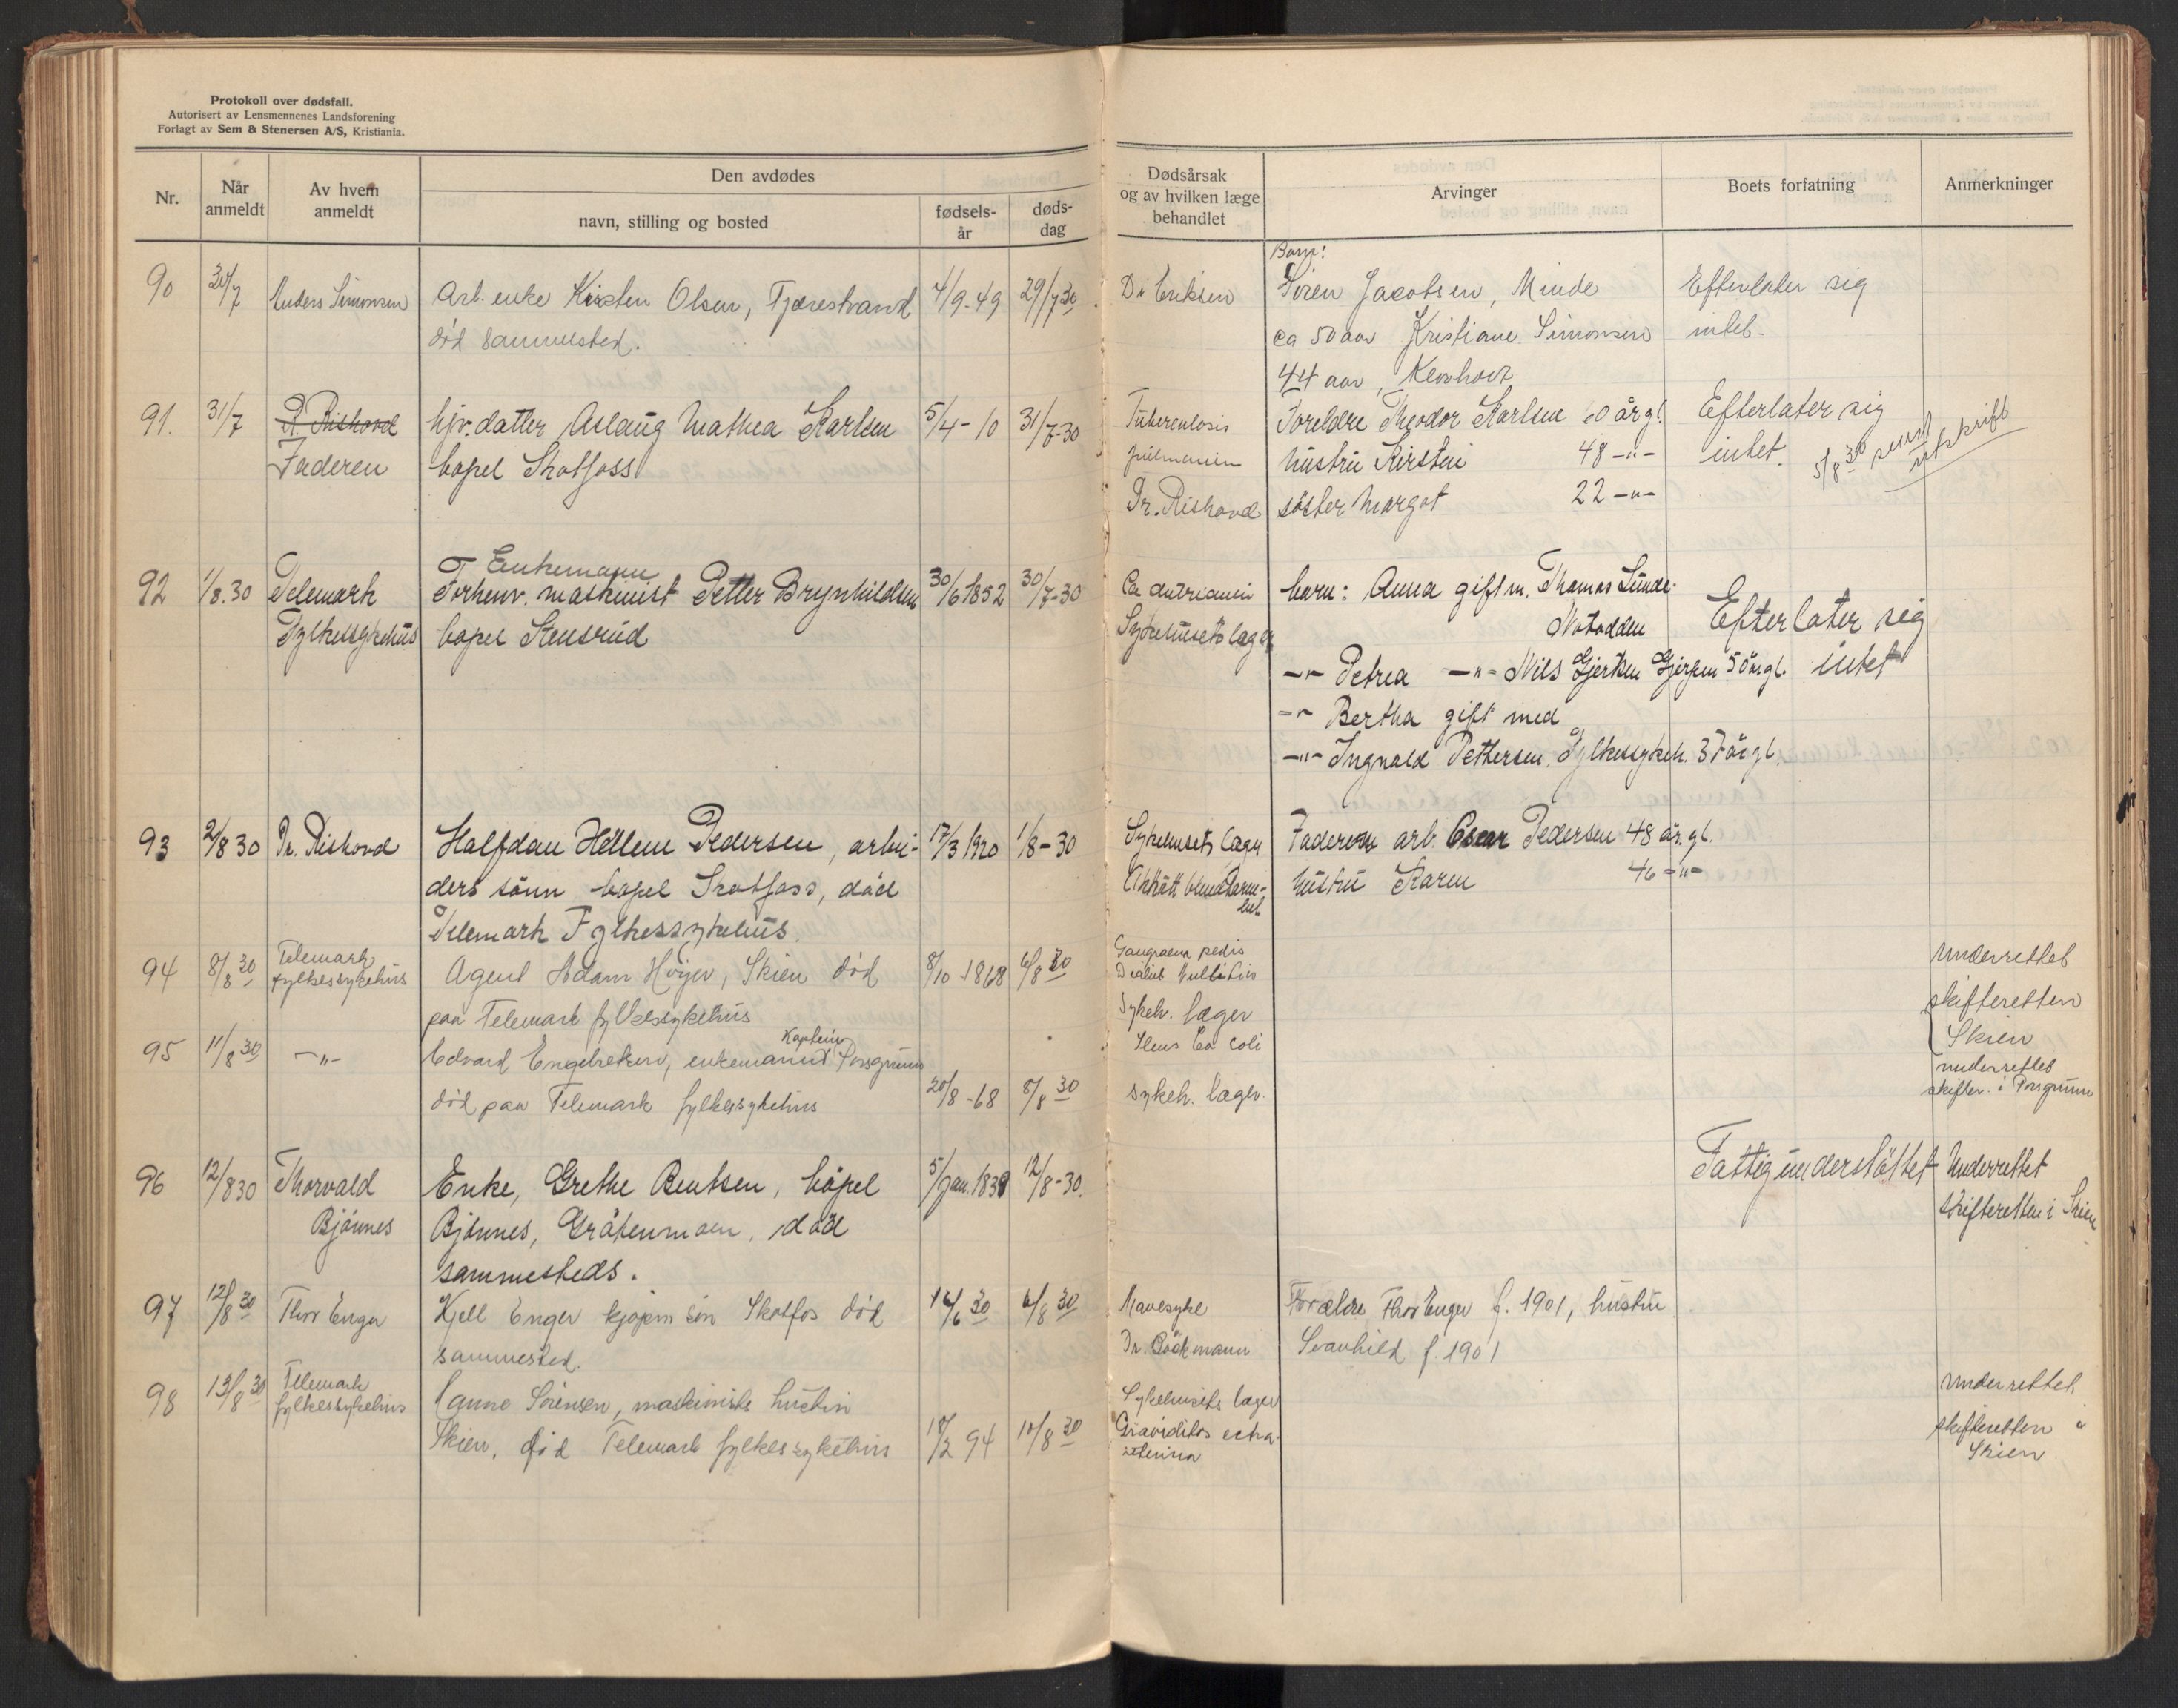 Protokoll over dødsfall.
Autorisert av Lensmennenes Landsforening
Forlagt av Sem & Stenersen A/S, Kristiania.
Nr. Når anmeldt Av hvem anmeldt Den avdødes navn, stilling og bosted fødsels-år døds-dag Dødsårsak og av hvilken læge behandlet Arvinger Boets forfatning Anmerkninger
Barn:
90 30/7 Anders Simonsen Arb. enke Kirsten Olsen, Fjærestrand 4/9-49 29/7 30 Dr Eriksen Sören Jacobsen, Minde Efterlater sig
död sammested. ca 50 aar Kristiane Simonsen intet.
44 aar,
91. 31/7 R. Rishovd hjv. datter Aslaug Mathea Karlsen 5/4-10 31/7-30 Tuberculosis Foreldre Theodor Karlsen 60 år gl. Efterlater sig
Faderen bopel Skotfoss pulmonum hustru Kirsten 48 -"- intet. 5/8 30 send utskrift
Dr. Rishovd söster Margot 22 -"-
Enkemann
92 1/8.30 Telemark Forhenv. maskinist Petter Brynhildsen 30/6 1852 30/7-30 Ca barn: Anna gift m. Thomas Lunde
Fylkessykehus bopel Stensrud Sykehusets læger Notodden Efterlater sig
-"- Petrea -"- Nils Gjertsen Gjerpen 50 år gl. intet
-"- Bertha gift med
-"- Ingvald Pettersen, Fylkessykeh. 37 år gl.
93 2/8 30 Dr. Rishovd Halfdan Hellem Pedersen, arbei- 17/3 1920 1/8-30 Sykehusets læger Faderen arb. Oscar Pedersen 48 år. gl.
ders sönn bopel Skotfoss, död Akkutt hustru Karen 46 -"-
Telemark Fylkessykehus.
94 8/8 30 Telemark fylkessykehus Agent Adam Höyer, Skien död 8/10 1868 6/8 30 Gangraena pedis Underrettet
Diabet Mellitus
paa Telemark fylkessykehus Sykeh. læger skifteretten
Skien
95 11/8 30 -"- Edvard Engebretsen, enkemannd Kaptein Porsgrunn Ileus Ca coli underrettet
död paa Telemark fylkessykehus 20/8-68 8/8 30 sykeh. læger. skifter. i Porsgrunn
96 12/8 30 Thorvald Enke, Grethe Bentsen, bopel 5/Jan. 1839 12/8-30. Fattigunderstöttet Underrettet
Bjönnes Bjönnes, Gråtenmoen, död skifteretten i Skien
sammesteds.
97 12/8 30 Thor Enger Kjell Enger kjöpm sön Skotfos död 14/6 30 6/8 30 Mavesyke Forældre Thor Enger f. 1901, hustru
sammested. Dr. Böckmann Svanhild f. 1901
98 13/8 30 Telemark fylkessykehus Hanna Sörensen, maskinists hustru Sykehusets læger Underrettet
Skien, död Telemark fylkessykehus 18/2 94 10/8 30 Graviditas extra- skifteretten i
uterina Skien